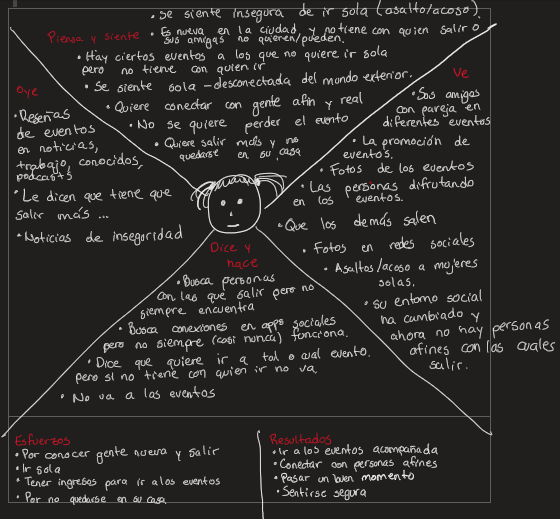 Piensa y siente
• Se siente insegura de ir sola (asalto/acoso).
• Es nueva en la ciudad, y no tiene con quien salir o
sus amigas no quieren/pueden.
• Hay ciertos eventos a los que no quiere ir sola
pero no tiene con quien ir
• Se siente sola – desconectada del mundo exterior.
• Quiere conectar con gente afin y real
• No se quiere perder el evento
• Quiere salir más y no
quedarse en su casa
Oye
• Reseñas
de eventos
en noticias,
trabajo, conocidos,
podcasts
• Le dicen que tiene que
salir más ...
• Noticias de inseguridad
Ve
• Sus amigas
con pareja en
diferentes eventos
• La promoción de
eventos.
• Fotos de los eventos
• Las personas difrutando
en los eventos.
• Que los demás salen
• Fotos en redes sociales
• Asaltos/acoso a mujeres
solas.
• su entorno social
ha cambiado y
ahora no hay personas
afines con las cuales
salir.
Dice y
hace
• Busca personas
con las que salir pero no
siempre encuentra
• Busca conexiones en apps sociales
pero no siempre (casi nunca) funciona.
• Dice que quiere ir a tal o cual evento.
pero si no tiene con quien ir no va.
• No va a los eventos
Esfuerzos
• Por conocer gente nueva y salir
• Ir sola
• Tener ingresos para ir a los eventos
• Por no quedarse en su casa
Resultados
• Ir a los eventos acompañada
• Conectar con personas afines
• Pasar un buen momento
• Sentirse segura